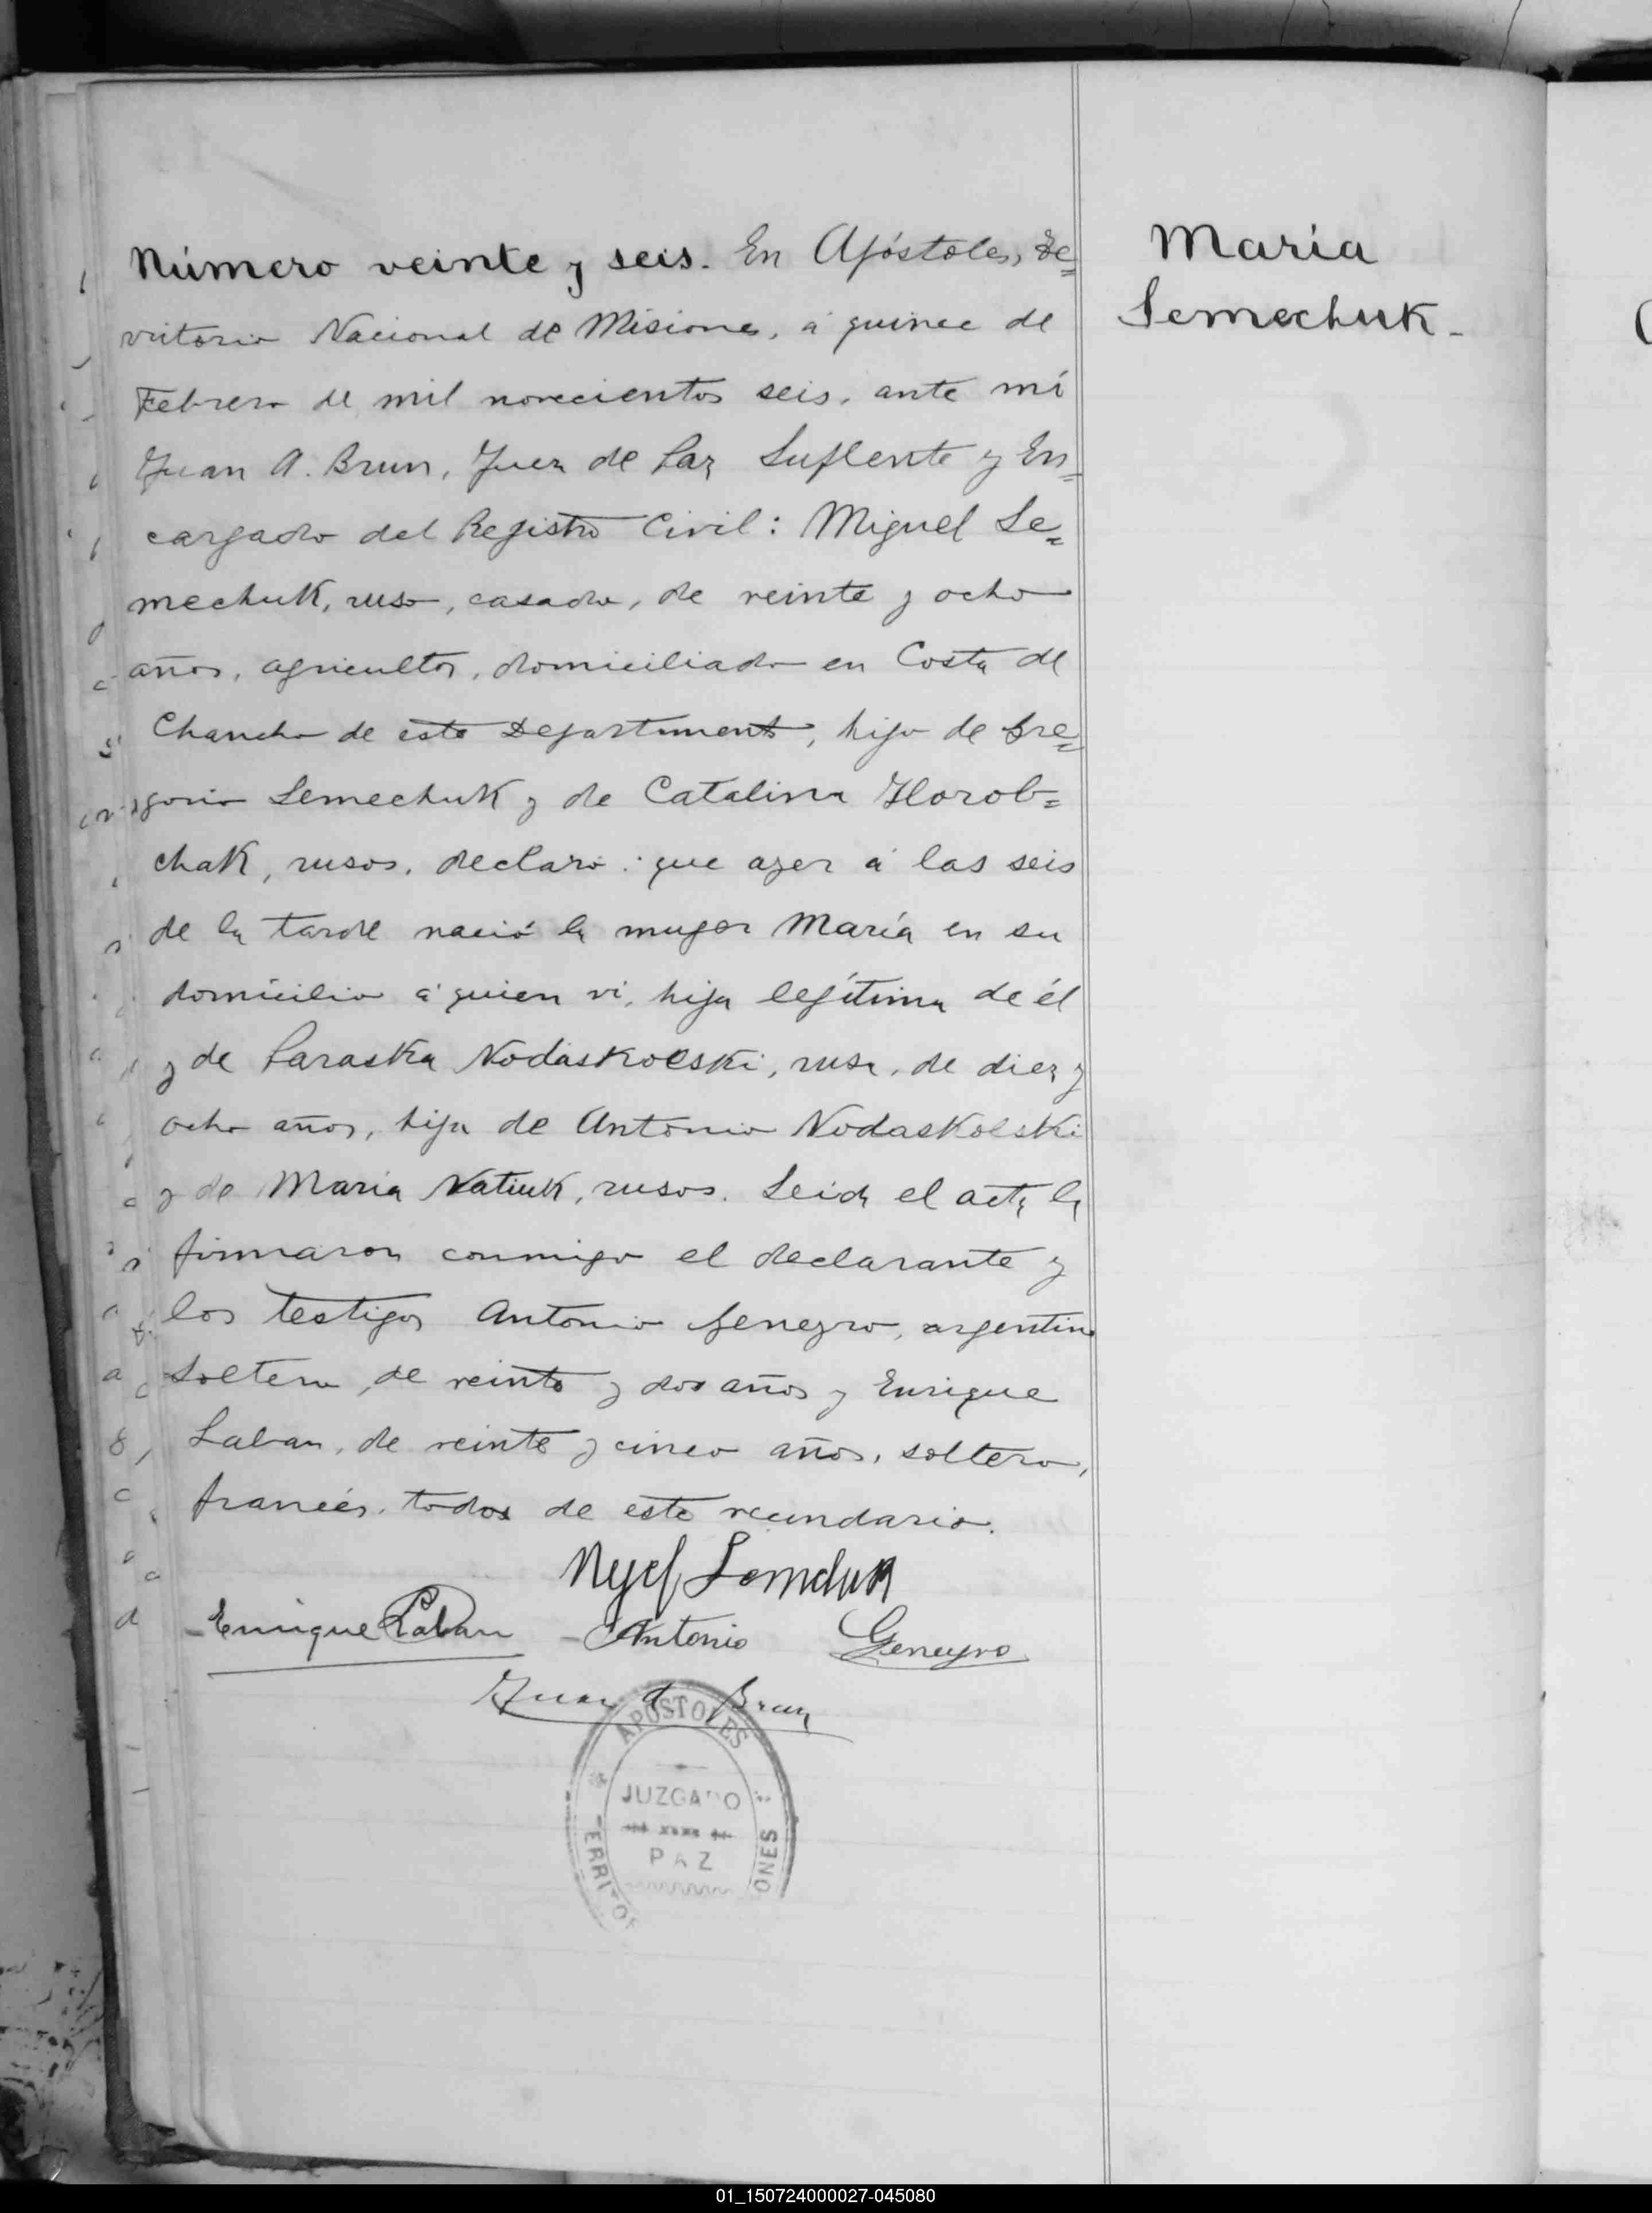 Número veinte y seis. En Apóstoles, Te=
rritorio Nacional de Misiones, á quince de
Febrero de mil novecientos seis, ante mí
Juan A. Brun, Juez de Paz Suplente y En=
cargado del Registro Civil: Miguel Se=
mechuk, ruso, casado, de veinte y ocho
años, agricultor, domiciliado en Costa del
Chancho de este Departamento, hijo de Gre=
gorio Semechuk y de Catalina Horob=
chak, rusos, declaró: que ayer á las seis
de la tarde nació la muger María en su
domicilio á quien ví, hija legítima de él
y de Paraska Nodaskolski, rusa, de diez y
ocho años, hija de Antonio Nodaskolski
y de María Natiuk, rusos. Leida el acta la
firmaron conmigo el declarante y
los testigos Antonio Geneyro, argentino
soltero, de veinte y dos años y Enrique
Laban, de veinte y cinco años, soltero,
francés, todos de este vecindario.
María
Semechuk.
Enrique Laban - Antonio Geneyro
Juan A. Brun
APOSTOLES
JUZGADO
PAZ
01_150724000027-045080